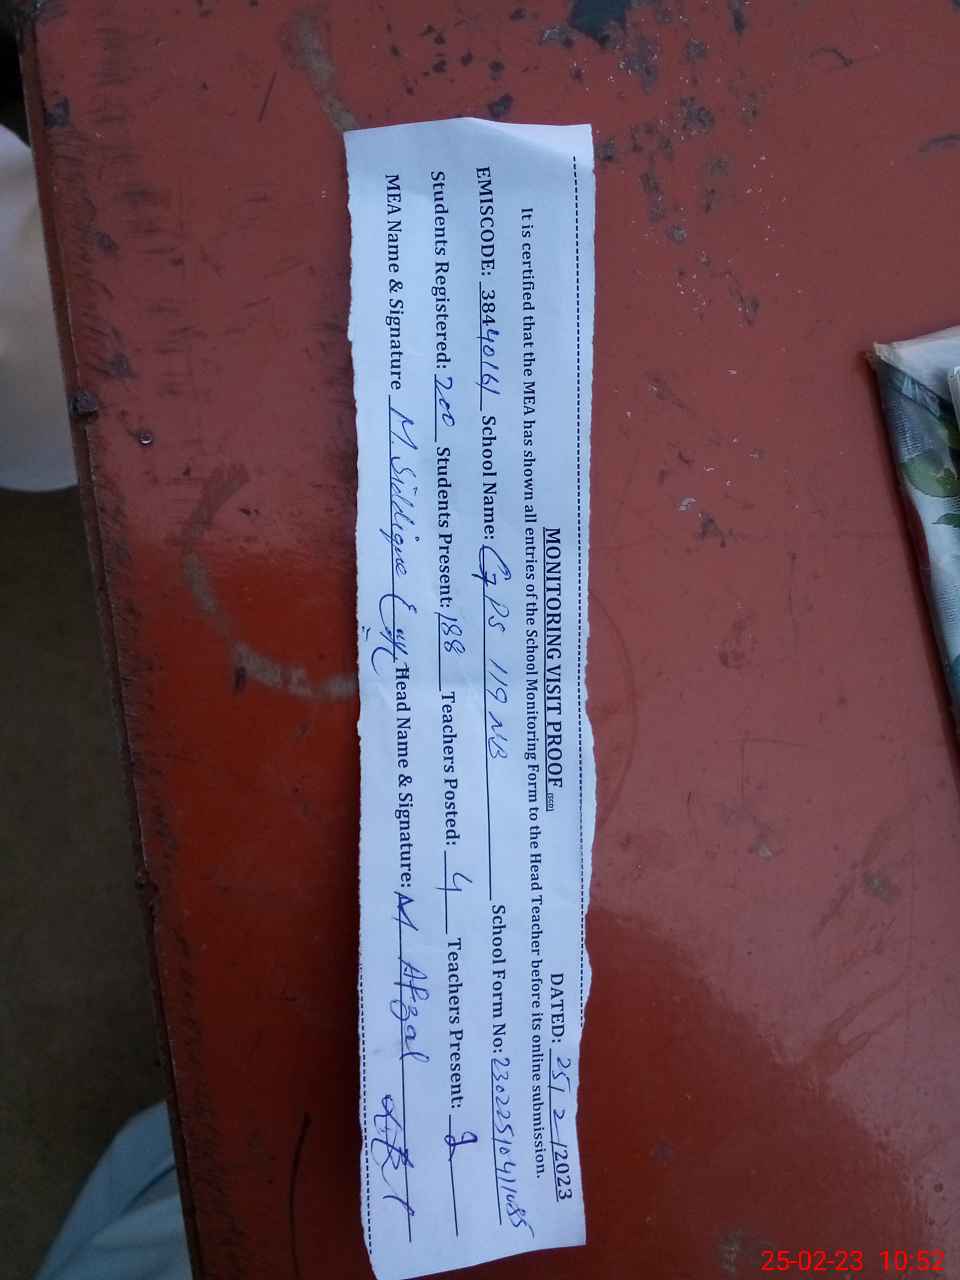 MONITORING VISIT PROOF (SGD) DATED: 25/2/2023
It is certified that the MEA has shown all entries of the School Monitoring Form to the Head Teacher before its online submission.
EMISCODE: 38440161 School Name: GPS 119 NB School Form No: 23022510411085
Students Registered: 200 Students Present: 188 Teachers Posted: 4 Teachers Present:
MEA Name & Signature M. Siddique Head Name & Signature: M Afzal
25-02-23 10:52